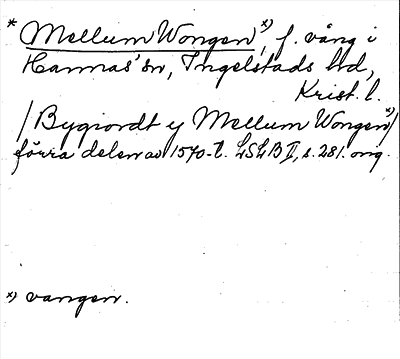 * Mellum Wongen *), f. vång i
Hannas' sn, Ingelstads hd,
Krist. l.
/Bygiordt y Mellum Wongen *)/
förra delen av 1570-t. LSLB II, s. 281. orig.
*) vangen.